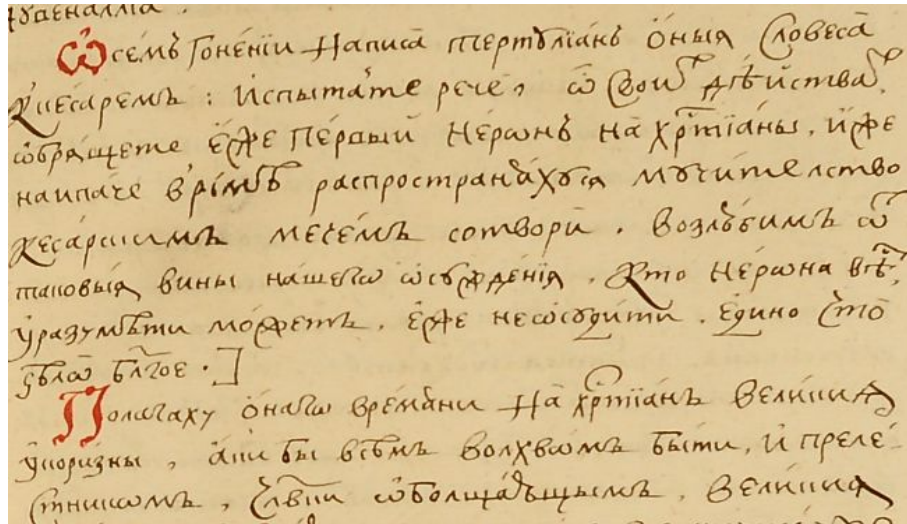 Ѡ семъ гоненїи написа тертꙋлїанъ ѻныѧ словеса
кꙋ кесаремъ : испытайте рече , ѡ свои дѣйства
ѡбрящете еже первый неронъ на хрⷭ҇тїаны , иже
наипаче в римѣ распространѧхꙋсѧ мꙋчителство
кесарскимъ мечемъ сотвори . возлюбимъ ѿ
таковыѧ вины нашегѡ ѡсꙋжденїѧ . кто нерѡна
ꙋразꙋмѣти можетъ , еже не ѡсꙋдити . едино что
ѕѣлѡ бл҃гое . ]
Полагахꙋ ѻнагѡ времѧни на хрⷭ҇тїанъ великиѧ
ꙋкоризны , аки бы всѣмъ волхвѡмъ быти , и преле-
стникомъ , ѡболщающымъ , великиѧ